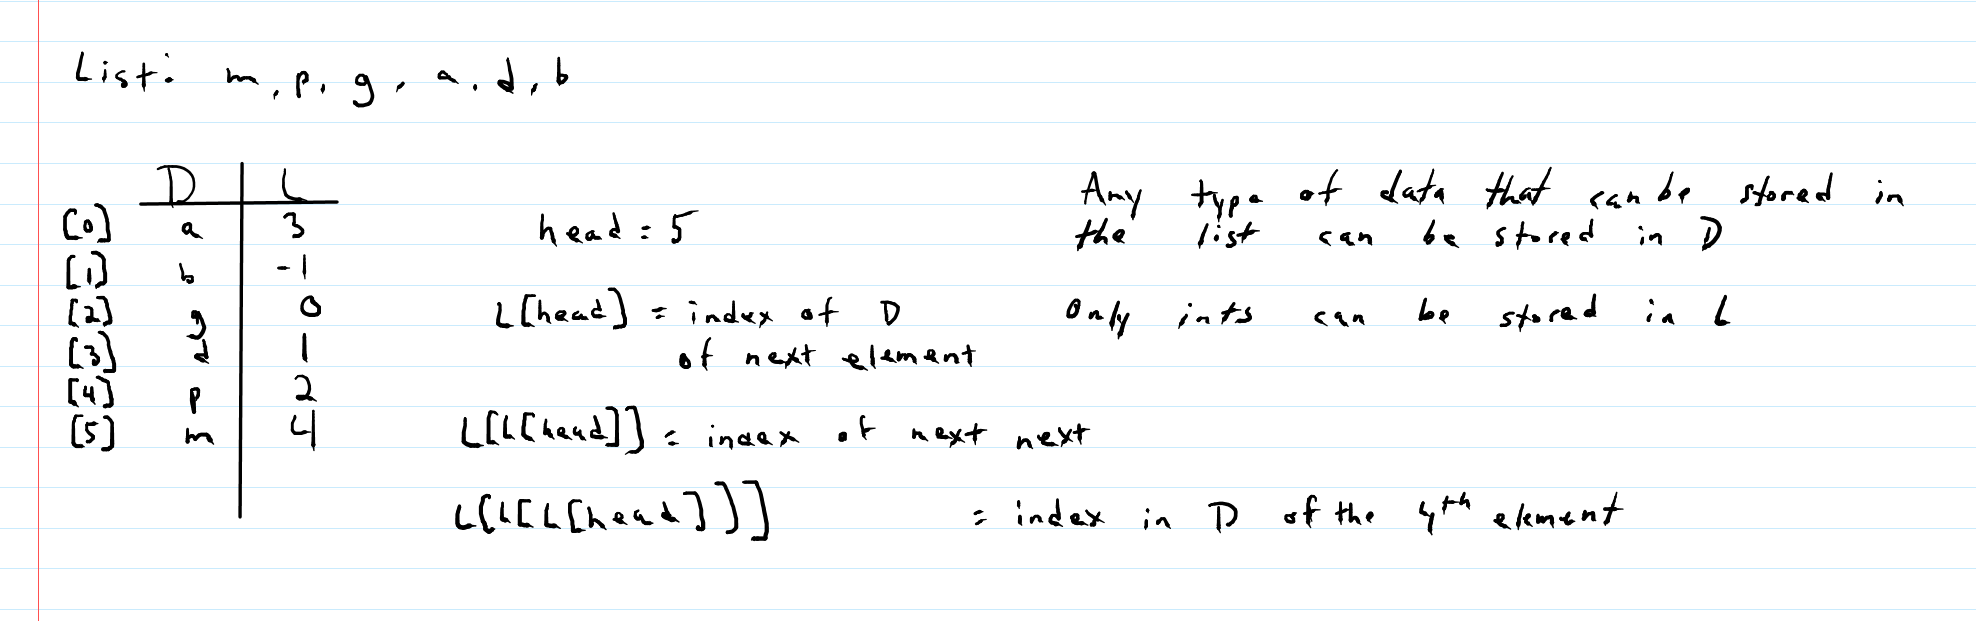 List: m, p, g, a, d, b
D L
[0] a 3
[1] b -1
[2] g 0
[3] d 1
[4] p 2
[5] m 4
head = 5
L[head] = index of D
of next element
L[L[head]] = index of next next
L[L[L[head]]] = index in D of the 4th element
Any type of data that can be stored in
the list can be stored in D
Only ints can be stored in L